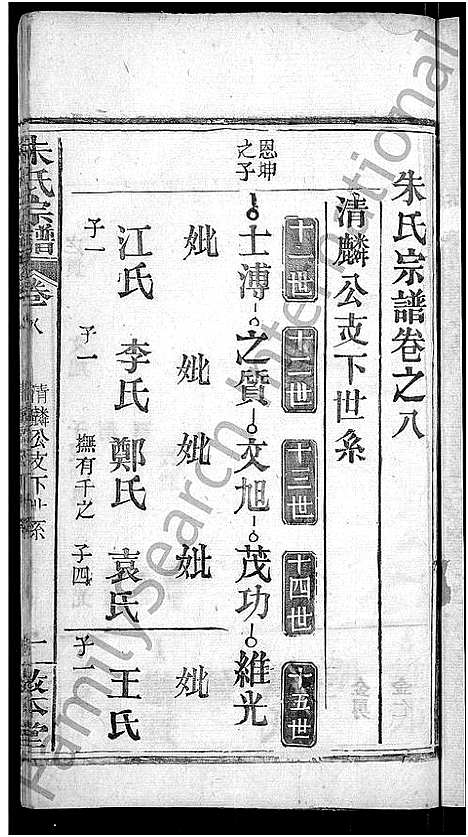 朱氏宗譜卷之八
清麟公支下世系
十一世 十二世 十三世 十四世 十五世
恩坤之子
士溥 之質 文旭 茂功 維光
妣 妣 妣 妣 妣
江氏 李氏 鄭氏 袁氏 王氏
子一 子一 撫有千之 子四 子一
朱氏宗譜 卷八 清麟公支下世系 一
FamilySearch International